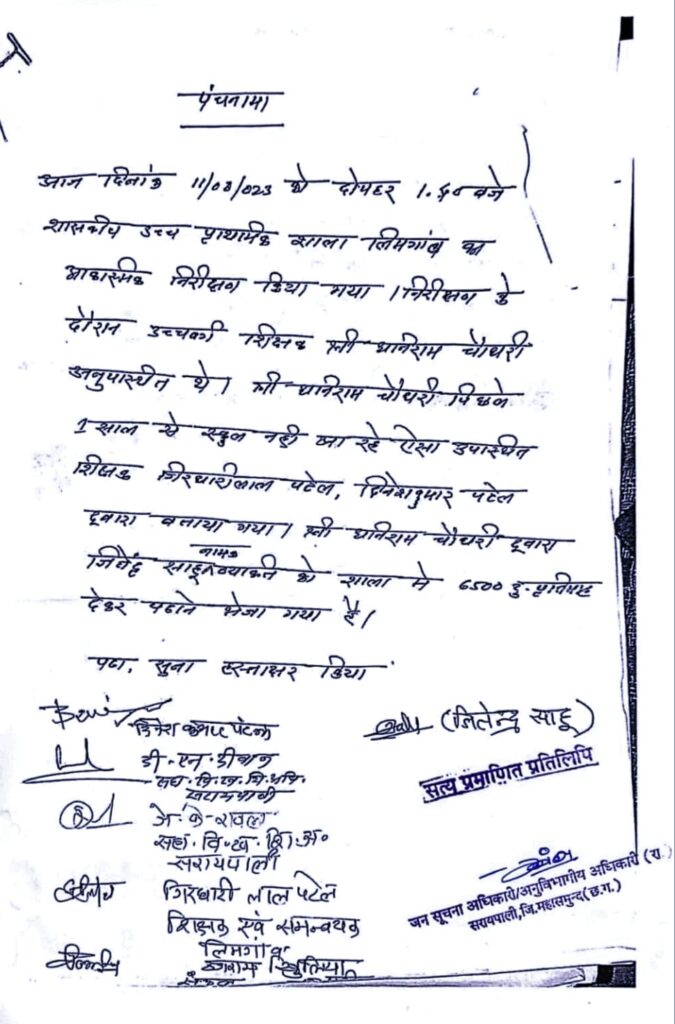 पंचनामा
आज दिनांक 11/08/023 को दोपहर 1.40 बजे
शासकीय उच्च प्राथमिक शाला लिमगांव का
आकास्मिक निरीक्षण किया गया । निरीक्षण के
दौरान उच्चवर्ग शिक्षक श्री धनिराम चौधरी
अनुपास्थित थे। श्री धनिराम चौधरी पिछले
1 साल से स्कुल नही आ रहे ऐसा उपास्थित
शिक्षक गिरधारीलाल पटेल, दिनेशकुमार पटेल
द्वारा बताया गया। श्री धनिराम चौधरी द्वारा
नामक
साहू व्याक्ति को शाला मे 6500 रु. प्रतिमाह
देकर पढाने भेजा गया है।
पढा, सुना हस्ताक्षर किया
दिनेश कुमार पटेल
(जितेन्द्र साहू)
डी. एन. दीवान
सत्य प्रमाणित प्रतिलिपि
जे. के. रावल
सहा. वि. ख. शि. अ.
सरायपाली
गिरधारी लाल पटेल
शिक्षक एवं समन्वयक
लिमगांव
जन सूचना अधिकारी/अनुविभागीय अधिकारी (रा.)
सरायपाली, जि.महासमुन्द (छ.ग.)